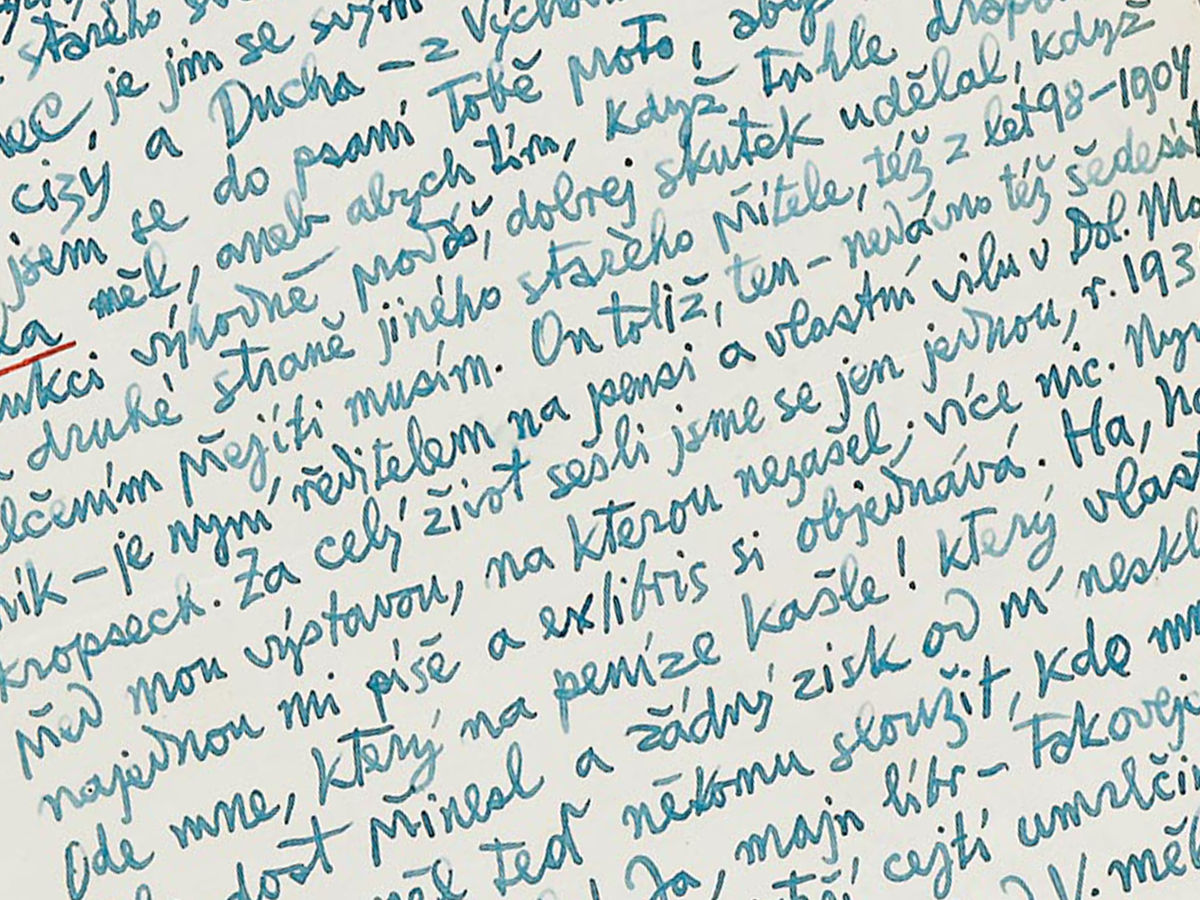 starého
je jim se svým
cizý a Ducha – z výcho
jsem se do psaní Tobě proto, aby
měl, aneb abych tím, když tuhle
výhodně prodáš, dobrej skutek udělal, když
druhé straně jiného starého přítele, též z let 98–1904
přejíti musím. On totiž, ten – nedávno též šedesát
vík – je nyní ředitelem na pensi a vlastní vilu v Dol. Mo
kropsech. Za celý život sešli jsme se jen jednou, r. 193
před mou výstavou, na kterou nezašel, více nic. Nyní
najednou mi píše a exlibris si objednává. Ha, ha
Ode mne, který na peníze kašle! který vlast
dost přinesl a žádný zisk od ní neskl
teď někomu sloužit, kde mn
Ja, majn líbr – Takovej
cejtí umrlči
V. měl